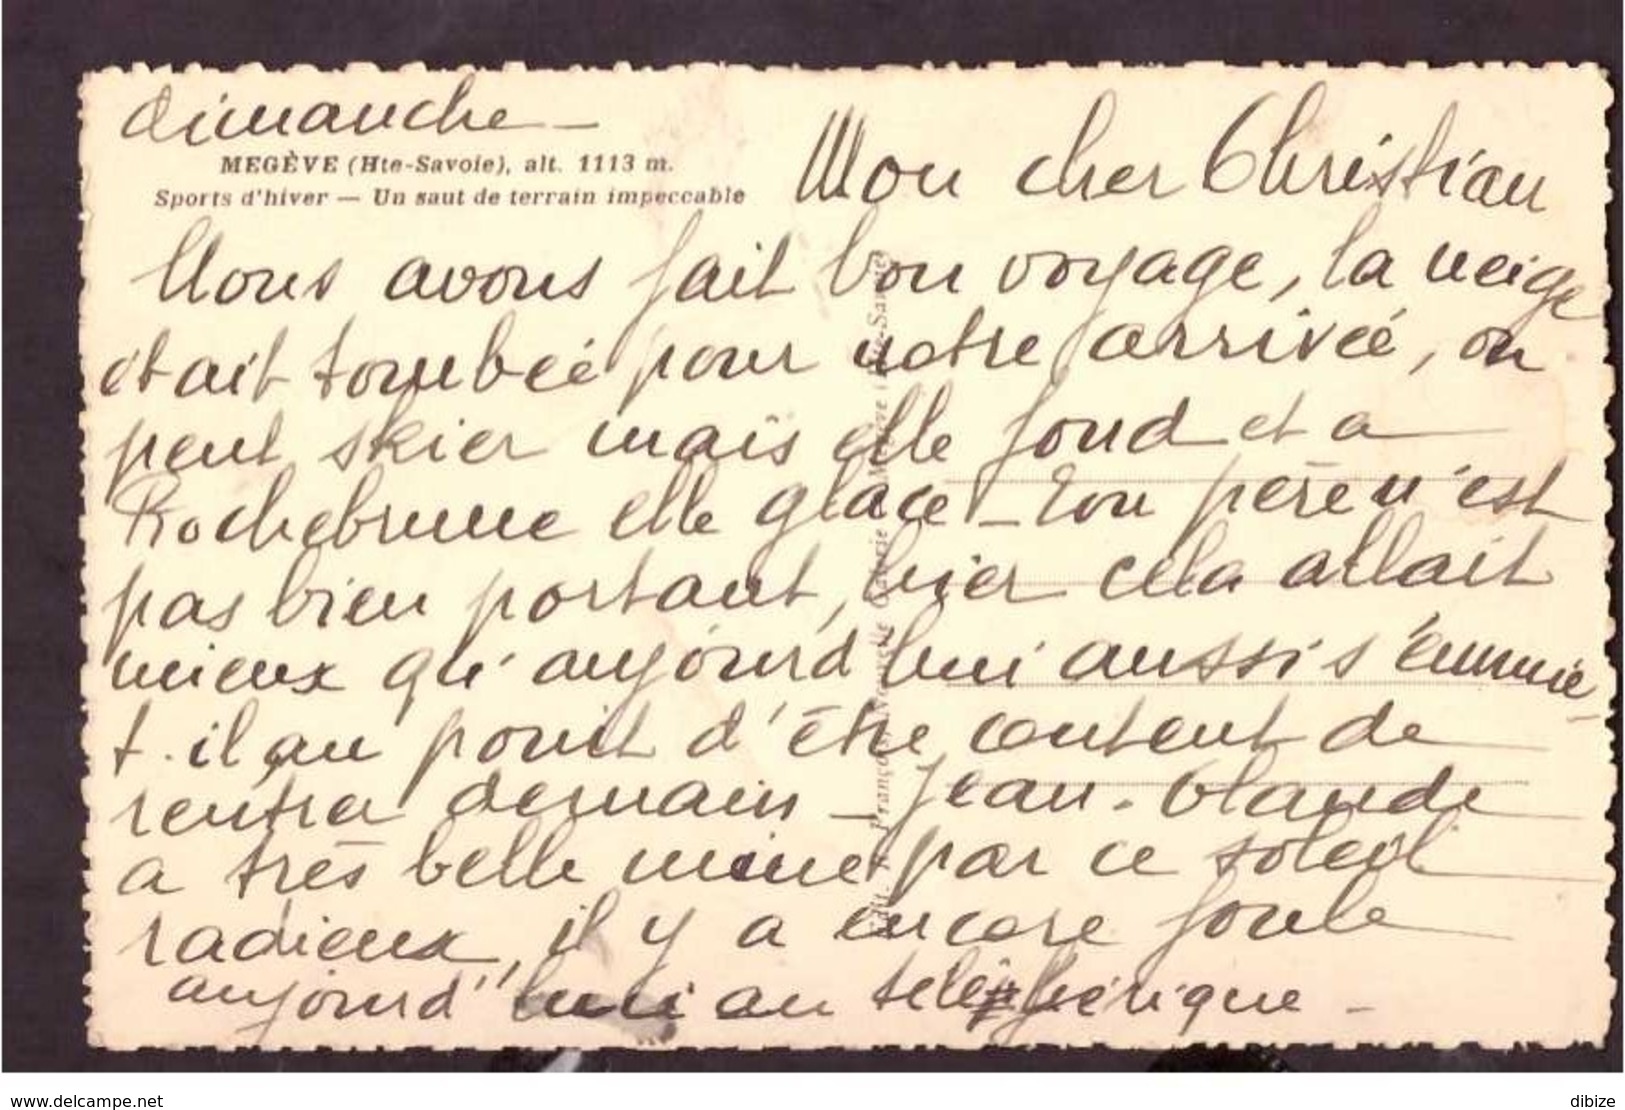 dimanche –
MEGÈVE (Hte-Savoie), alt. 1113 m.
Sports d'hiver — Un saut de terrain impeccable
Mon cher Christian
Nous avons fait bon voyage, la neige
était tombée pour notre arrivée, on
peut skier mais elle fond et a
Rochebrune elle glace – ton père n'est
pas bien portant, hier cela allait
mieux qu'aujourd'hui aussi s'ennuie
t-il au point d'être content de
rentrer demain – Jean-Claude
a très belle mine par ce soleil
radieux, il y a encore foule
aujourd'hui au téléphérique –
www.delcampe.net
dibize